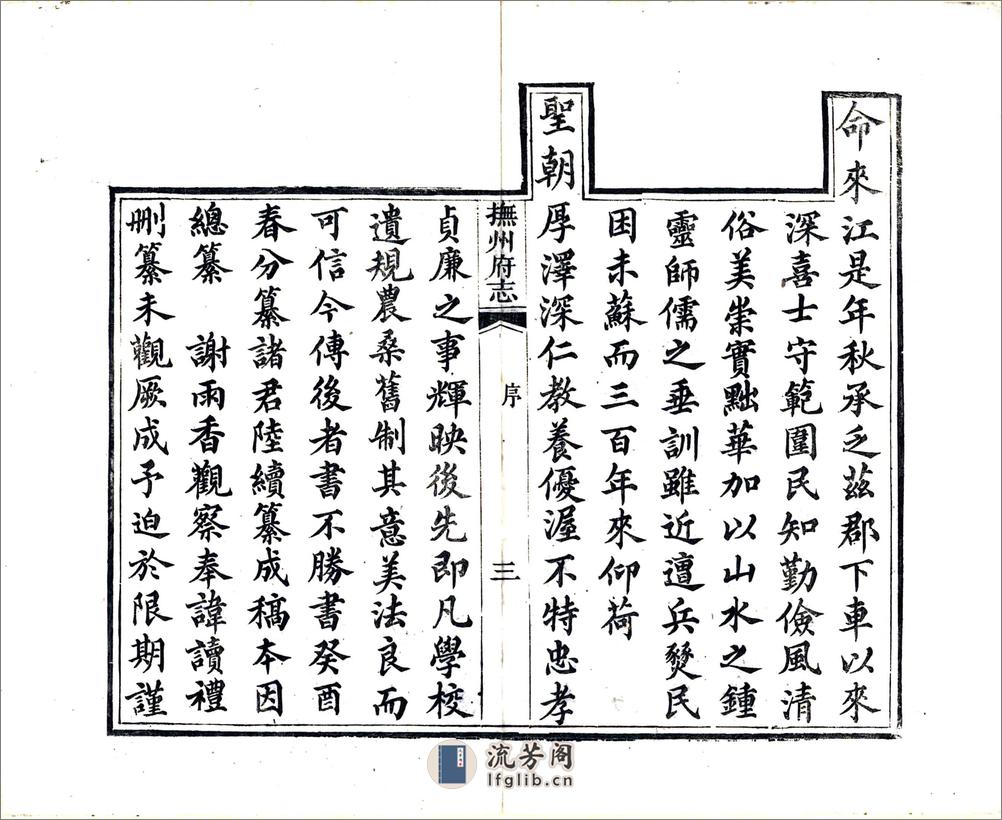 命來江是年秋承乏茲郡下車以來
深喜士守範圍民知勤儉風清
俗美崇實黜華加以山水之鍾
靈師儒之垂訓雖近遭兵燹民
困未蘇而三百年來仰荷
聖朝厚澤深仁教養優渥不特忠孝
撫州府志
序
三
貞廉之事輝映後先即凡學校
遺規農桑舊制其意美法良而
可信今傳後者書不勝書癸酉
春分纂諸君陸續纂成稿本因
總纂 謝雨香觀察奉諱讀禮
刪纂未觀厥成予迫於限期謹
流芳阁
lfglib.cn